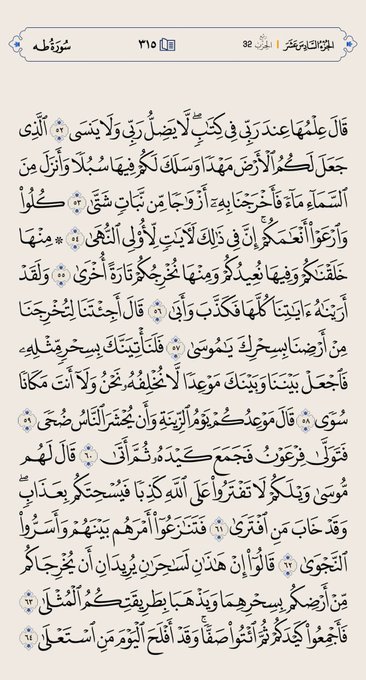 الجزء السادس عشر | الحزب 32
٣١٥
سورة طه
قَالَ عِلْمُهَا عِندَ رَبِّى فِى كِتَٰبٍ ۖ لَّا يَضِلُّ رَبِّى وَلَا يَنسَى ٥٢ ٱلَّذِى
جَعَلَ لَكُمُ ٱلْأَرْضَ مَهْدًا وَسَلَكَ لَكُمْ فِيهَا سُبُلًا وَأَنزَلَ مِنَ
ٱلسَّمَآءِ مَآءً فَأَخْرَجْنَا بِهِۦٓ أَزْوَٰجًا مِّن نَّبَاتٍ شَتَّىٰ ٥٣ كُلُوا۟
وَٱرْعَوْا۟ أَنْعَٰمَكُمْ ۗ إِنَّ فِى ذَٰلِكَ لَـَٔايَٰتٍ لِّأُو۟لِى ٱلنُّهَىٰ ٥٤ ۞ مِنْهَا
خَلَقْنَٰكُمْ وَفِيهَا نُعِيدُكُمْ وَمِنْهَا نُخْرِجُكُمْ تَارَةً أُخْرَىٰ ٥٥ وَلَقَدْ
أَرَيْنَٰهُ ءَايَٰتِنَا كُلَّهَا فَكَذَّبَ وَأَبَىٰ ٥٦ قَالَ أَجِئْتَنَا لِتُخْرِجَنَا
مِنْ أَرْضِنَا بِسِحْرِكَ يَٰمُوسَىٰ ٥٧ فَلَنَأْتِيَنَّكَ بِسِحْرٍ مِّثْلِهِۦ
فَٱجْعَلْ بَيْنَنَا وَبَيْنَكَ مَوْعِدًا لَّا نُخْلِفُهُۥ نَحْنُ وَلَآ أَنتَ مَكَانًا
سُوًى ٥٨ قَالَ مَوْعِدُكُمْ يَوْمُ ٱلزِّينَةِ وَأَن يُحْشَرَ ٱلنَّاسُ ضُحًى ٥٩
فَتَوَلَّىٰ فِرْعَوْنُ فَجَمَعَ كَيْدَهُۥ ثُمَّ أَتَىٰ ٦٠ قَالَ لَهُم
مُّوسَىٰ وَيْلَكُمْ لَا تَفْتَرُوا۟ عَلَى ٱللَّهِ كَذِبًا فَيُسْحِتَكُم بِعَذَابٍ ۖ
وَقَدْ خَابَ مَنِ ٱفْتَرَىٰ ٦١ فَتَنَٰزَعُوٓا۟ أَمْرَهُم بَيْنَهُمْ وَأَسَرُّوا۟
ٱلنَّجْوَىٰ ٦٢ قَالُوٓا۟ إِنْ هَٰذَٰنِ لَسَٰحِرَٰنِ يُرِيدَانِ أَن يُخْرِجَاكُم
مِّنْ أَرْضِكُم بِسِحْرِهِمَا وَيَذْهَبَا بِطَرِيقَتِكُمُ ٱلْمُثْلَىٰ ٦٣
فَأَجْمِعُوا۟ كَيْدَكُمْ ثُمَّ ٱئْتُوا۟ صَفًّا ۚ وَقَدْ أَفْلَحَ ٱلْيَوْمَ مَنِ ٱسْتَعْلَىٰ ٦٤